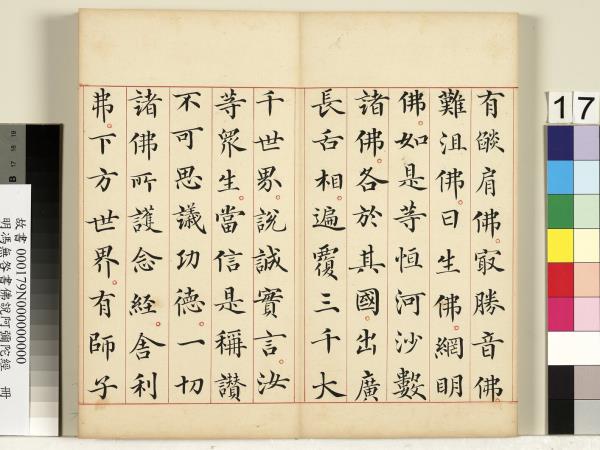 有燄肩佛寂勝音佛
難沮佛日生佛網明
佛如是等恒河沙數
諸佛各於其國出廣
長舌相遍覆三千大
千世界說誠實言汝
等眾生當信是稱讚
不可思議功德一切
諸佛所護念經舍利
弗下方世界有師子
17
故書 000179N000000000
明馮無咎書佛說阿彌陀經 冊